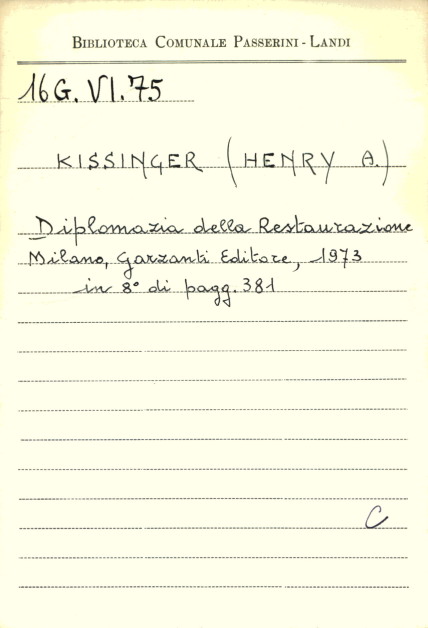 BIBLIOTECA COMUNALE PASSERINI-LANDI
16G.VI.75
KISSINGER (HENRY A.)
Diplomazia della Restaurazione
Milano, Garzanti Editore, 1973
in 8° di pagg. 381
C